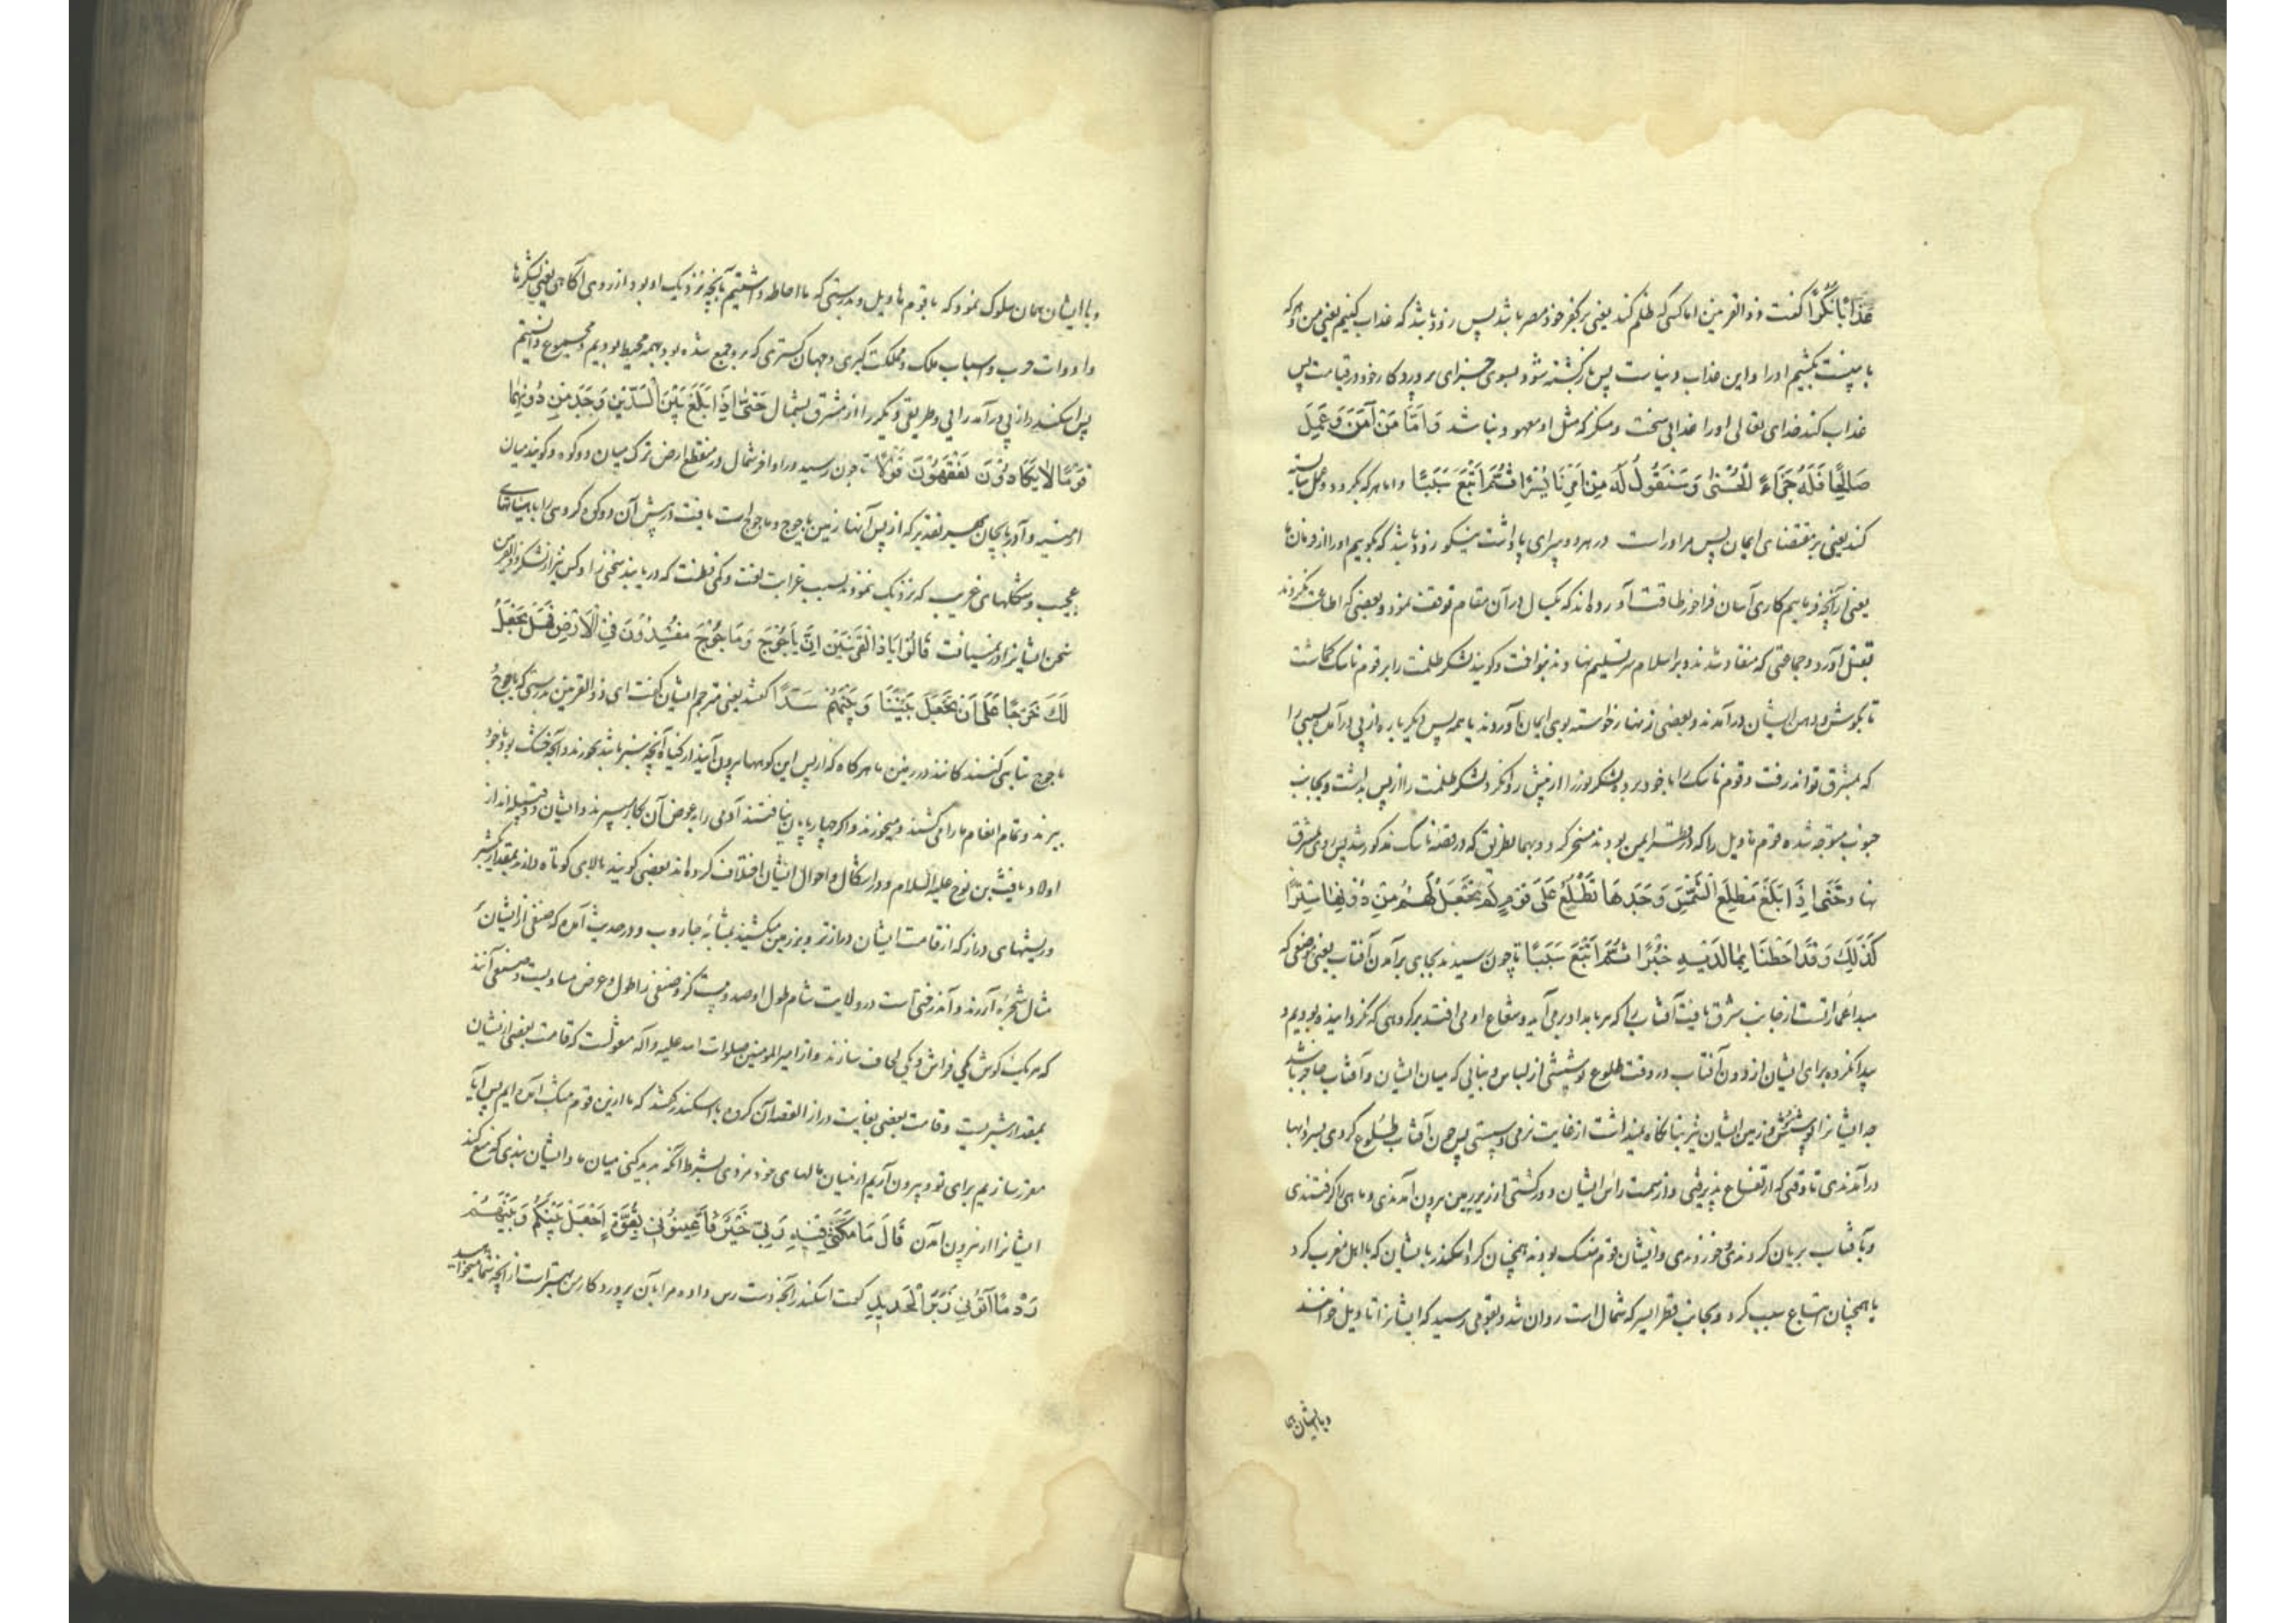 عَذَابًا نُكْرًا گفت ذوالقرنین اما کسی که ظلم کند یعنی بر کفر خود مصر باشد پس زود باشد که عذاب کنیم یعنی من و هر که
با منست بکشیم او را و این عذاب دنیاست پس بازگشته شود بسوی جزای پروردکار خود در قیامت پس
عذاب کند خدای تعالی او را عذابی سخت و منکر که مثل او معهود نباشد وَاَمَّا مَنْ آمَنَ وَعَمِلَ
صَالِحًا فَلَهُ جَزَاءً الْحُسْنٰى وَسَنَقُولُ لَهُ مِنْ اَمْرِنَا يُسْرًا ثُمَّ اَتْبَعَ سَبَبًا و اما هر که بگرود و عمل شایسته
کند یعنی بر مقتضای ایمان پس مر او راست در هر دو سرای پاداشت نیکو زود باشد که گوییم او را از فرمانها
یعنی از آنچه فرماییم کاری آسان فراخور طاقت آورده‌اند که یکسال در آن مقام توقف نمود و بعضی که اطاعت نکردند
بقتل آورد و جماعتی که منقاد شدند و بر اسلام سر تسلیم نهادند بنواخت و گویند لشکر ظلمت را بر قوم ناسک گماشت
تا بگوش و دهن ایشان درآمدند و بعضی زنهار خواسته بوی ایمان آوردند یا همه پس دیگرباره از پی درآمد سببی را
که بمشرق تواند رفت و قوم ناسک را با خود برد و لشکر نور را از پیش روان کرد و لشکر ظلمت را از پس بداشت و بجانب
جنوب متوجه شده قوم هاویل را که در قطر ایمن بودند مسخر کرد و بهمانطریق که در قصه ناسک مذکور شد پس روی بمشرق
نهاد حَتّٰى اِذَا بَلَغَ مَطْلِعَ الشَّمْسِ وَجَدَهَا تَطْلُعُ عَلٰى قَوْمٍ لَمْ نَجْعَلْ لَهُمْ مِنْ دُونِهَا سِتْرًا
كَذٰلِكَ وَقَدْ اَحَطْنَا بِمَا لَدَيْهِ خُبْرًا ثُمَّ اَتْبَعَ سَبَبًا تا چون رسید بجای برآمدن آفتاب یعنی موضعی که
مبداء عمارتست از جانب شرق یافت آفتاب را که هر بامداد برمی‌آید و شعاع او می‌افتد بر گروهی که نگردانیده بودیم و
پیدا نکرده برای ایشان از دون آفتاب در وقت طلوع پوششی از لباس و بنایی که میان ایشان و آفتاب حاجز باشد
چه ایشانرا پوشش و زمین ایشان نیز بنا نگاه نمیداشت از غایت نرمی و سستی پس چون آفتاب طلوع کردی بسردابها
درآمدندی تا وقتی که ارتفاع پذیرفتی و از سمت راس ایشان درگذشتی از زیر زمین بیرون آمدندی و ماهی را گرفتندی
و بآفتاب بریان کردندی و خوردندی و ایشان قوم منسک بودند همچنان کرد اسکندر بایشان که با اهل مغرب کرد
یا همچنان اتباع سبب کرد و بجانب قطر ایسر که شمال است روان شد و بقومی رسید که ایشانرا تاویل خوانند
و با ایشان هما
و با ایشان همان سلوک نمود که با قوم هاویل و بدرستی که ما احاطه داشتیم بآنچه نزدیک او بود از روی آگاهی یعنی لشکرها
و ادوات حرب و اسباب ملک و مملکت گیری و جهان گستری که برو جمع شده بود بهمه محیط بودیم و مجموع دانستیم
پس اسکندر از پی درآمد راهی و طریقی دیگر را از مشرق بشمال حَتّٰى اِذَا بَلَغَ بَيْنَ السَّدَّيْنِ وَجَدَ مِنْ دُونِهِمَا
قَوْمًا لَا يَكَادُونَ يَفْقَهُونَ قَوْلًا تا چون رسید در اواخر شمال در منقطع ارض ترک میان دو کوه و گویند میان
ارمنیه و آذربایجان بهر تقدیر که از پس آنها زمین یاجوج و ماجوج است یافت در پیش آن دو کوه گروهی را با هیأتهای
عجیب و شکلهای غریب که نزدیک نبودند بسبب غرابت لغت و کمی فطنت که دریابند سخنی را و کس نیز از لشکر ذوالقرنین
سخن ایشانرا در نمییافت قَالُوا يَا ذَا الْقَرْنَيْنِ اِنَّ يَاْجُوجَ وَمَاْجُوجَ مُفْسِدُونَ فِي الْاَرْضِ فَهَلْ نَجْعَلُ
لَكَ خَرْجًا عَلٰى اَنْ تَجْعَلَ بَيْنَنَا وَبَيْنَهُمْ سَدًّا گفتند یعنی مترجم ایشان گفت ای ذوالقرنین بدرستی که یاجوج
ماجوج تباهی کنندگانند در زمین ما هر گاه که از پس این کوهها بیرون آیند از گیاه آنچه سبز باشد بخورند و آنچه خشک بود با خود
ببرند و تمام انعام ما را می‌کشند و میخورند و اگر چهارپایان نیافتند آدمی را بعوض آن بکار میبرند و ایشان دو قبیله‌اند از
اولاد یافث بن نوح علیه السلام و در اشکال و احوال ایشان اختلاف کرده‌اند بعضی گویند بالای کوتاه دارند بمقدار یکشبر
و ریشهای دراز که از قامت ایشان درازتر و بر زمین میکشند بمثابه جاروب و در حدیث آمده که صنفی از ایشان
مثال شجره ارزند و آن درختی است در ولایت شام طول او صد و بیست گز و صنفی را طول و عرض مساویست و صنفی آنند
که هر یک گوش یکی فراش و یکی لحاف سازند و از امیرالمومنین صلوات الله علیه و آله منقولست که قامت بعضی از ایشان
بمقدار شبریست و قامت بعضی بغایت دراز القصه آن گروه با اسکندر گفتند که ما ازین قوم بتنگ آمده ایم پس آیا
مقرر سازیم برای تو و بیرون آریم از میان مالهای خود مزدی بشرط آنکه پدید کنی میان ما و ایشان سدی که منع کند
ایشانرا از بیرون آمدن قَالَ مَا مَكَّنِّي فِيهِ رَبِّي خَيْرٌ فَاَعِينُونِي بِقُوَّةٍ اَجْعَلْ بَيْنَكُمْ وَبَيْنَهُمْ
رَدْمًا آتُونِي زُبَرَ الْحَدِيدِ گفت اسکندر آنچه دست رس داده مرا بآن پروردکار من بهتر است از آنچه شما میخواهید